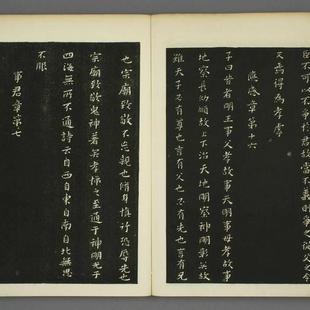 臣不可以不爭於君故當不義則爭之從父之令
又焉得為孝乎
應感章第十六
子曰昔者明王事父孝故事天明事母孝故事
地察長幼順故上下治天地明察神明彰矣故
雖天子必有尊也言有父也必有先也言有兄
也宗廟致敬不忘親也脩身慎行恐辱先也
宗廟致敬鬼神著矣孝悌之至通于神明光于
四海無所不通詩云自西自東自南自北無思
不服
事君章第七